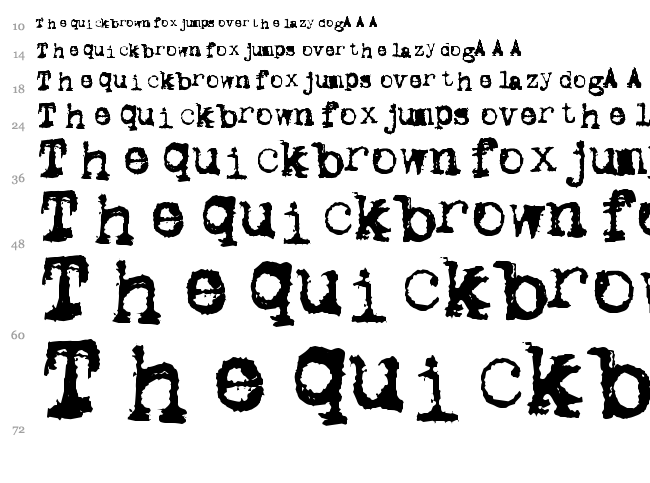 10 The quickbrown fox jumps over the lazy dogAAA
14 The quickbrown fox jumps over the lazy dogAAA
18 The quickbrown fox jumps over the lazy dogAA
24 The quickbrown fox jumps over the l
36 The quickbrown fox jum
48 The quickbrown fo
60 The quickbro
72 The quickb